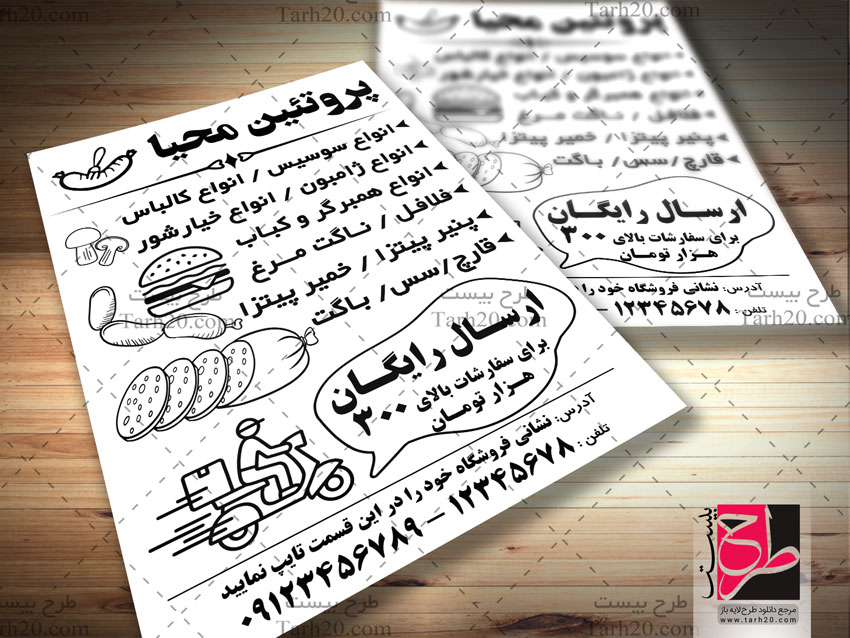 پروتئین محیا
انواع سوسیس / انواع کالباس
انواع ژامبون / انواع خیارشور
انواع همبرگر و کباب
فلافل / ناگت مرغ
پنیر پیتزا / خمیر پیتزا
قارچ/سس/ باگت
ارسال رایگان
برای سفارشات بالای ۳۰۰
هزار تومان
آدرس: نشانی فروشگاه خود را در این قسمت تایپ نمایید
تلفن: ۱۲۳۴۵۶۷۸ – ۰۹۱۲۳۴۵۶۷۸۹
پروتئین محیا
انواع سوسیس / انواع کالباس
انواع ژامبون / انواع خیارشور
انواع همبرگر و کباب
فلافل / ناگت مرغ
پنیر پیتزا/ خمیر پیتزا
قارچ/سس/ باگت
ارسال رایگان
برای سفارشات بالای ۳۰۰
هزار تومان
آدرس: نشانی فروشگاه خود را
تلفن: ۱۲۳۴۵۶۷۸ –
طرح بیست
Tarh20.com
طرح بیست
مرجع دانلود طرح لایه باز
www.tarh20.com